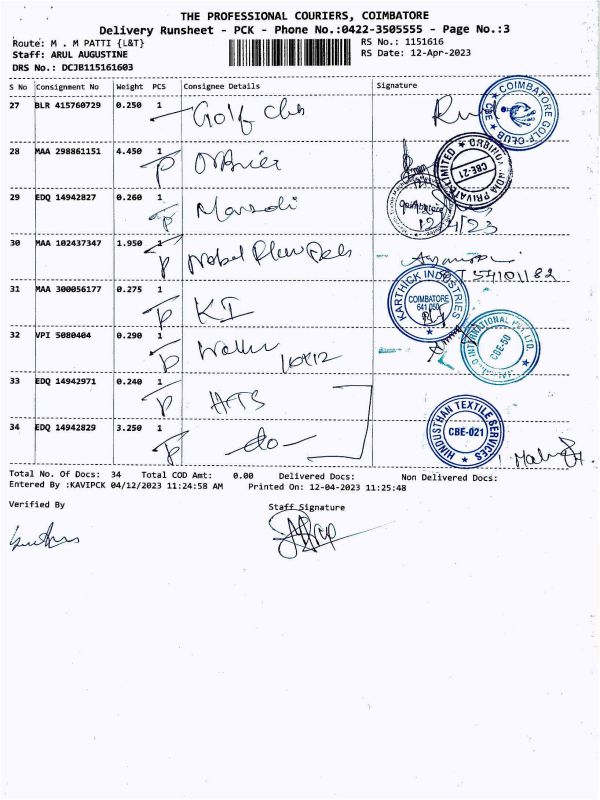 THE PROFESSIONAL COURIERS, COIMBATORE
Delivery Runsheet - PCK - Phone No.:0422-3505555 - Page No.:3
Route: M . M PATTI {L&T}
RS No.: 1151616
Staff: ARUL AUGUSTINE
RS Date: 12-Apr-2023
DRS No.: DCJB115161603
S No Consignment No Weight PCS Consignee Details Signature
27 BLR 415760729 0.250 1 Golf Club
COIMBATORE GOLF CLUB CBE
28 MAA 298861151 4.450 1
PRIVATE LIMITED CBE-21
29 EDQ 14942827 0.260 1
Coimbatore
12/4/23
30 MAA 102437347 1.950 1
31 MAA 300056177 0.275 1 KI
KARTHICK INDUSTRIES COIMBATORE 641 050
32 VPI 5080404 0.290 1
INTERNATIONAL PVT. LTD. CBE-50
33 EDQ 14942971 0.240 1 HTS
34 EDQ 14942829 3.250 1 -do-
HINDUSTHAN TEXTILE SERVICES CBE-021
Total No. Of Docs: 34 Total COD Amt: 0.00 Delivered Docs: Non Delivered Docs:
Entered By :KAVIPCK 04/12/2023 11:24:58 AM Printed On: 12-04-2023 11:25:48
Verified By Staff Signature